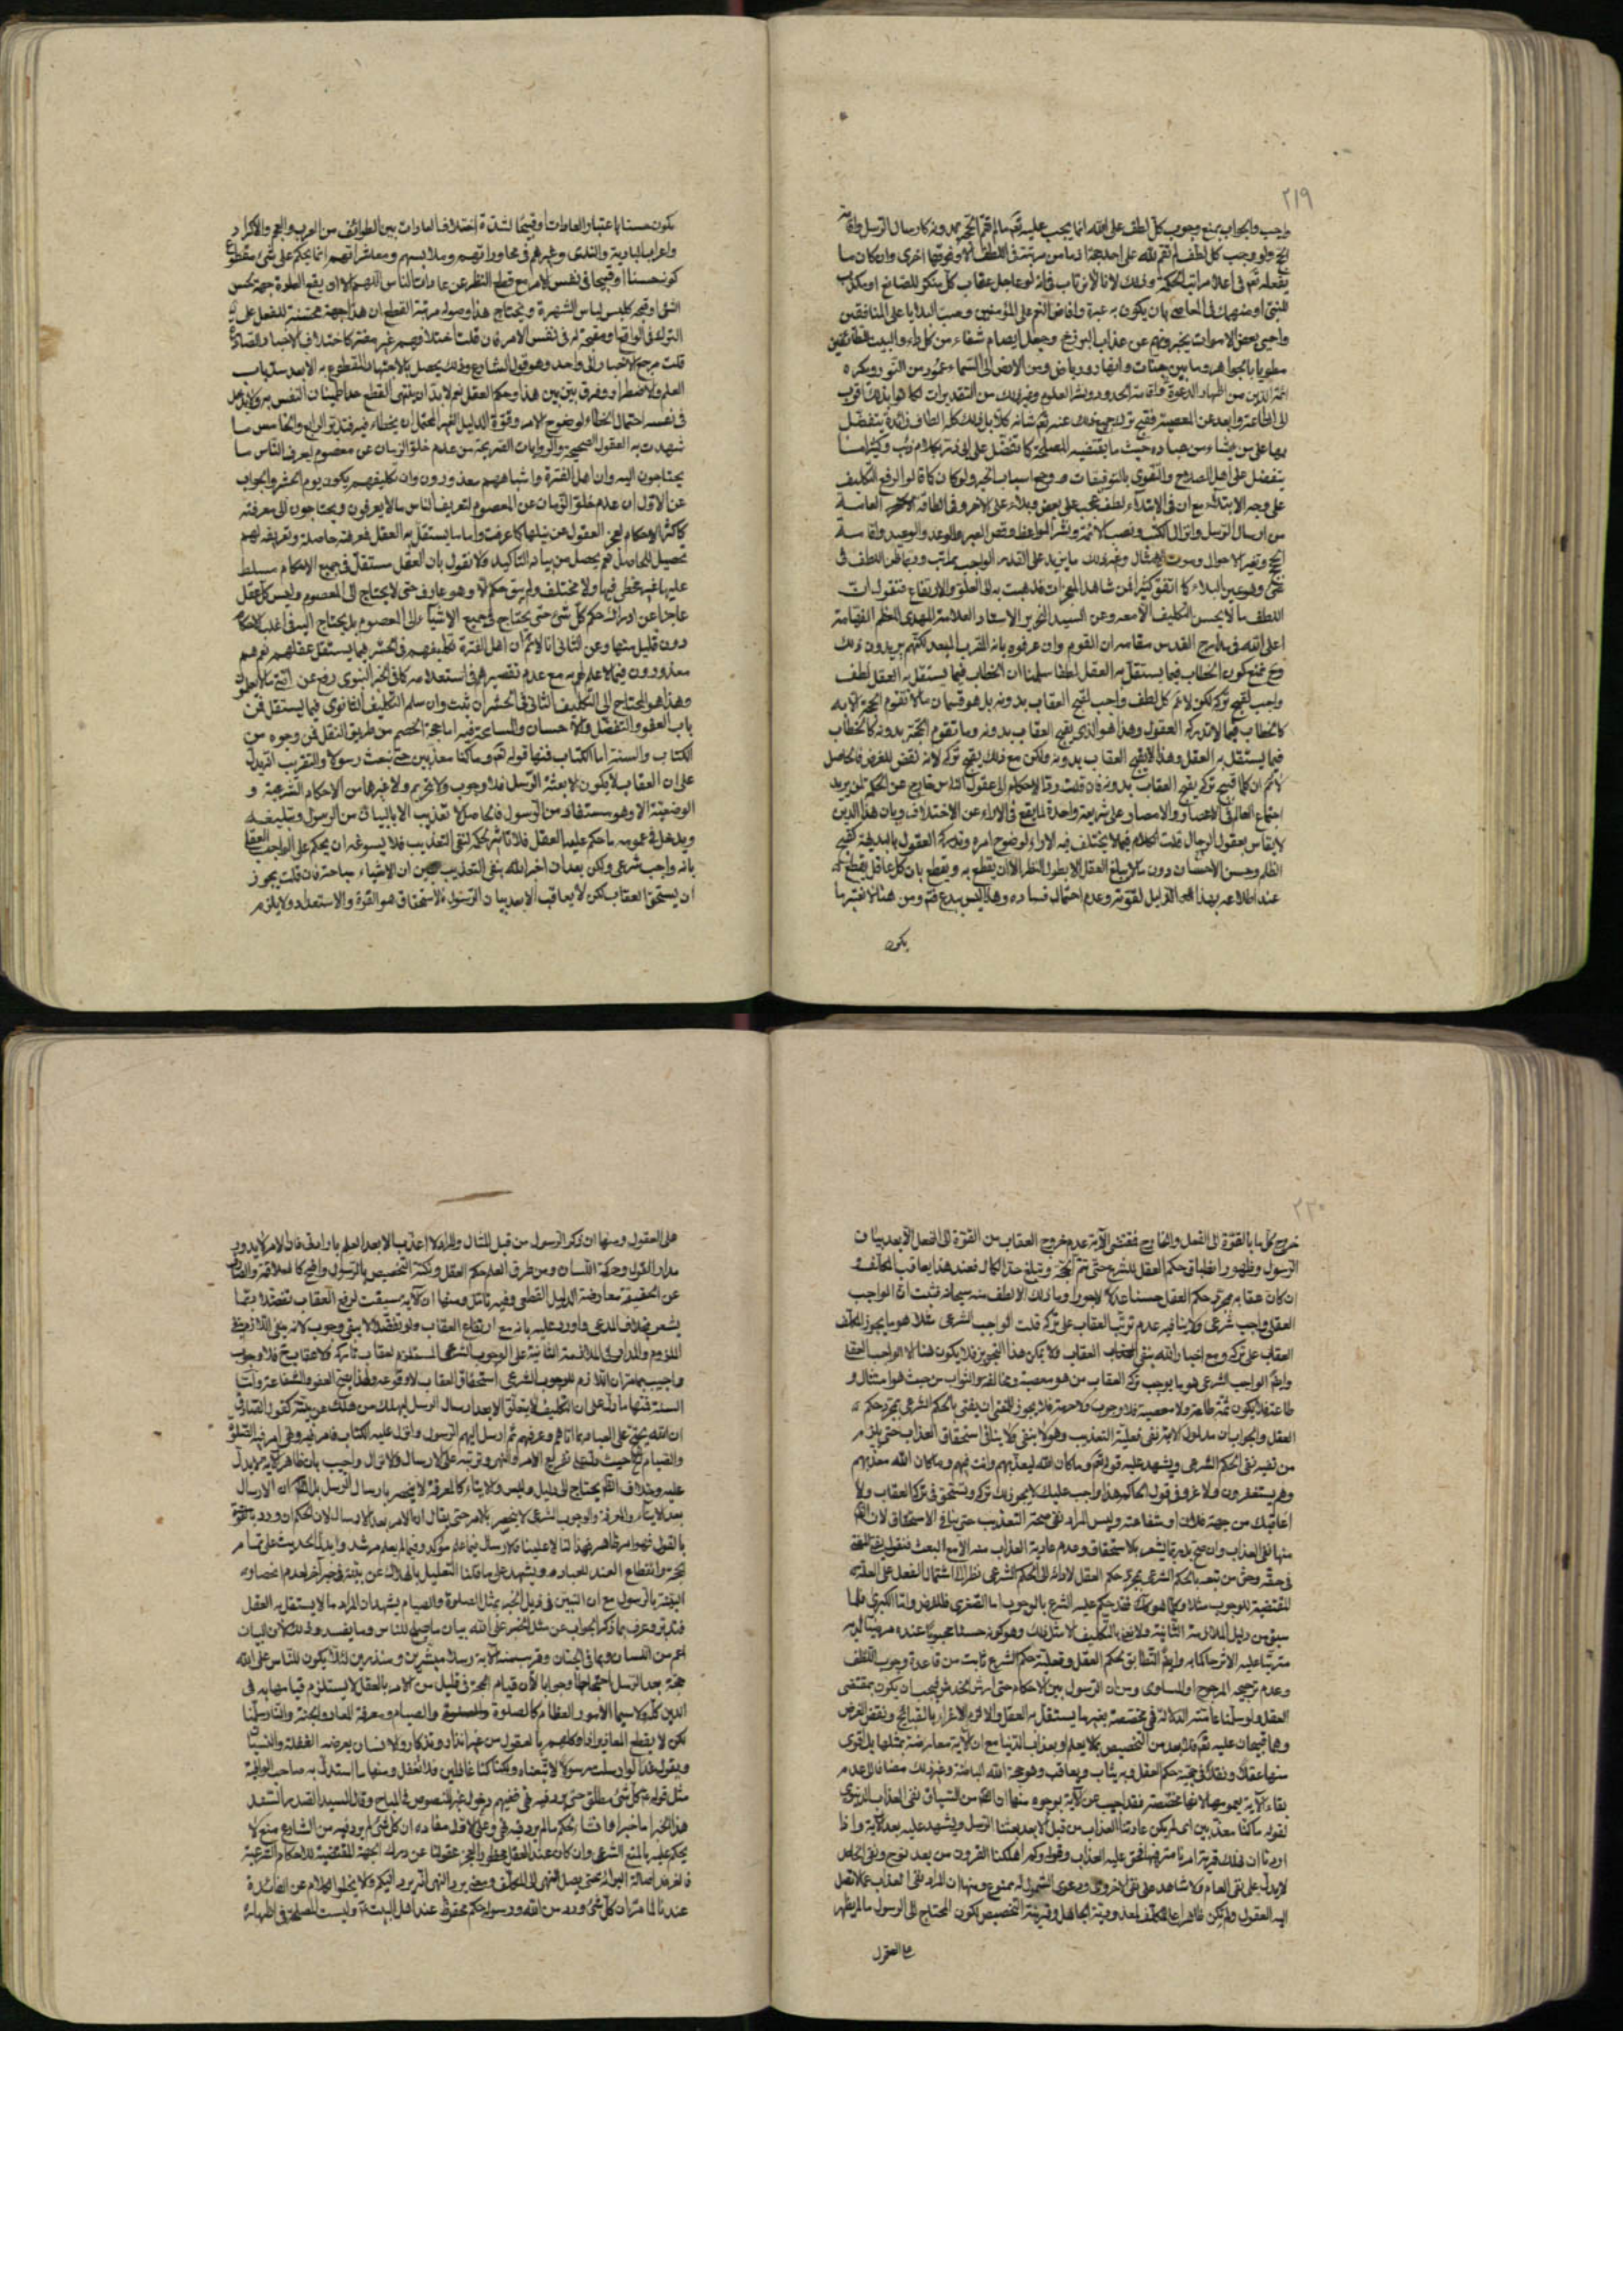 ٢١٩
واجب والجواب بمنع وجوب كل لطف على الله انما يجب عليه تعالى ما لم تقم الحجة بدونه كارسال الرسل واقامة
الحجة ولو وجب كل لطف لم تقم لله على احد حجة اذ ما من مرتبة في اللطف الا وفوقها اخرى وان كان ما
يفعله تعالى في اعلا مراتب الحكمة وذلك لانا لا نرتاب في انه لو عاجل عقاب كل منكر للصانع او مكذب
للنبي او منهمك في المعاصي بان يكون به عبرة وافاض النعم على المؤمنين وصب البلايا على المنافقين
واحيى بعض الاموات يخبرونهم عن عذاب البرزخ وجعل ايصام شفاء من كل داء والبيت للطائفين
مطويا بالجواهر وما بين جنات وانهار ورياض ومن الارض الى السماء عمود من النور ويكره
ائمة الدين من اظهار الدعوة واقامة الحدود ونشر العلوم وغير ذلك من التقديرات لكانوا بذلك اقرب
الى الطاعة وابعد عن المعصية فقبيح ترك جميع ذلك عنه تعالى شانه كلا بل ذلك كله الطاف زائدة يتفضل
بها على من يشاء من عباده حيث ما يقتضيه المصلحة كما تفضل على ابي ذر بكلام ذئب وكثيرا ما
يتفضل على اهل الصلاح والتقوى بالتوفيقات وجميع اسباب الخير ولو كان كما قالوا لرفع التكليف
على وجه الابتداء مع ان في الابتداء لطف يجب على بعض وبلاء على الاخر وفي الطافه العامة
من ارسال الرسل وانزال الكتب ونصب الائمة ونشر المواعظ وقصص العبر والوعد والوعيد واقامة
الحجج وتغير الاحوال وصوت الامثال وغير ذلك ما يزيد على القدر الواجب بمراتب وربما ظن اللطف في
شيء وهو عين البلاء كما اتفق كثيرا لمن شاهد المعجزات فذهبت به الى الغلو والارتفاع فنقول ان
اللطف ما لا يحسن التكليف الا معه وعن السيد النحرير الاستاد العلامة المهدي المعظم الفهامة
اعلى الله في مدارج القدس مقامه ان القوم وان عرفوه بانه المقرب المبعد لكنهم يريدون ذلك
وح نمنع كون الخطاب فيما يستقل به العقل لطفا سلمنا ان الخطاب فيما يستقل به العقل لطف
واجب لقبح تركه لكن لا نم كل لطف واجب لقبح العقاب بدونه بل هو قسمان ما لا تقوم الحجة الا به
كالخطاب فيما لا تدركه العقول وهذا هو الذي يقبح العقاب بدونه وما تقوم الحجة بدونه كالخطاب
فيما يستقل به العقل وهذا لا يقبح العقاب بدونه ولكن مع ذلك يقبح تركه لانه نقض للغرض فالحاصل
لا نم ان كلما قبح تركه يقبح العقاب بدونه فان قلت رد الاحكام الى عقول الناس خارج عن الحكمة لمن يريد
اجتماع العالم في الاعصار والامصار على شريعة واحدة لما يقع في الاراء عن الاختلاف وبان هذا الدين
لا يقاس بعقول الرجال قلت الكلام فيما لا يختلف فيه الاراء لوضوح امره وتدركه العقول بالبديهة كقبح
الظلم وحسن الاحسان دون ما لا يبلغه العقل الا بطول النظر الا ان يقطع به ويقطع بان كل عاقل يقطع به
عند اطلاعه بهذا الدليل لقوته وعدم احتمال فساده وهذا ليس ببدع فتم ومن هنا لا نعتبر ما
يكون
يكون حسنا باعتبار العادات او قبيحا لشدة اختلاف العادات بين الطوائف من العرب والعجم والاكراد
واعراب البادية والقرى وغيرهم في محاوراتهم وملابسهم ومعاشراتهم انما يحكم على شيء مقطوع
كونه حسنا او قبيحا في نفس الامر مع قطع النظر عن عادات الناس اللهم الا ان يقع العادة جهة لحسن
الشيء او قبحه كلبس لباس الشهرة ويحتاج هذا وصوله مرتبة القطع ان هذا جهة محسنة للفعل على
الترك في الواقع او مقبحة له في نفس الامر فان قلت اختلافهم غير مضر كاختلاف الاخبار المتضادة
قلت مرجع الاخبار الى واحد وهو قول الشارع وذلك يحصل بالاجتهاد المقطوع به الا بعد سد باب
العلم والاضطرار وفرق بين بين هذا وحكم العقل نعم لا بد ان ينتهي القطع حد اطمينان النفس به ولا يدخل
في نفسه احتمال الخطاء لوضوح الامر وقوة الدليل الغير المحتمل ان يخطاء فيه فتدبر الرابع والخامس ما
شهدت به العقول الصحيحة والروايات الصريحة من عدم خلو الزمان عن معصوم ليعرف الناس ما
يحتاجون اليه وان اهل الفترة واشباههم معذورون وان تكليفهم يكون يوم الحشر والجواب
عن الاول ان عدم خلو الزمان عن المعصوم لتعريف الناس ما لا يعرفون ويحتاجون الى معرفته
كاكثر الاحكام لعجز العقول عن نيلها كما عرفت واما ما يستقل به العقل فمعرفته حاصلة وتعريفه لهم
تحصيل للحاصل نعم يحصل من بيانه التاكيد ولا نقول بان العقل مستقل في جميع الاحكام مسلط
عليها غير مخطئ فيها ولا مختلف ولم يبق حكم الا وهو عارف حتى لا يحتاج الى المعصوم وليس كل عقل
عاجزا عن ادراك حكم كل شيء حتى يحتاج في جميع الاشياء الى المعصوم بل يحتاج اليه في اغلب الاحكام
دون قليل منها وعن الثاني انا لا نم ان اهل الفترة تكليفهم في الحشر فيما يستقل عقلهم نعم هم
معذورون فيما لا علم لهم به مع عدم تقصيرهم في استعلامه كما في الخبر النبوي رفع عن امتي ما لا يعلمون
وهذا هو المحتاج الى التكليف الثاني في الحشر ان ثبت وان سلم التكليف الثانوي فيما يستقل فمن
باب العفو والتفضل والاحسان والمسامحة فيه اما حجة الخصم من طريق النقل فمن وجوه من
الكتاب والسنة اما الكتاب فمنها قوله تعالى وما كنا معذبين حتى نبعث رسولا والتقريب انه يدل
على ان العقاب لا يكون الا بعد بعثة الرسل فلا وجوب ولا تحريم ولا غيرها من الاحكام الشرعية و
الوضعية الا وهو مستفاد من الرسول فالحاصل لا تعذيب الا بالبيان من الرسول وتبليغه
ويدخل في عمومه ما حكم عليه العقل فلا تاثير لحكمه لنفي التعذيب فلا يسوغ له ان يحكم على الواجب العقلي
بانه واجب شرعي ولكن بعد ان اخبر الله بنفي التعذيب تبين ان الاشياء مباحة فان قلت يجوز
ان يستحق العقاب لكن لا يعاقب الا بعد بيان الرسول والاستحقاق هو القوة والاستعداد ولا يلزم
٢٢٠
خروج كل ما بالقوة الى الفعل والخارج فمقتضى الآية عدم خروج العقاب من القوة الى الفعل الا بعد بيان
الرسول وظهور انطباق حكم العقل للشرع حتى تتم الحجة وتبلغ حد الكمال فعند هذا يعاقب المخالف و
ان كان عقابه بمجرد حكم العقل حسنا عدلا لا جورا وما ذلك الا لطف منه سبحانه فثبت ان الواجب
العقلي واجب شرعي ولا ينافيه عدم ترتب العقاب على تركه قلت الواجب الشرعي مثلا هو ما يجوز المكلف
العقاب على تركه ومع اخبار الله بنفي العقاب فلا يمكن هذا التجويز فلا يكون هنا الا الواجب العقلي
وايضا الواجب الشرعي هو ما يوجب تركه العقاب من هو معصية ومخالفة والثواب من حيث هو امتثال و
طاعة فلا يكون ثمة طاعة ولا معصية فلا وجوب ولا حرمة فلا يجوز للمفتي ان يفتي بالحكم الشرعي بمجرد حكم
العقل والجواب ان مدلول الآية نفي فعلية التعذيب وهو لا ينفي ولا ينافي استحقاق العذاب حتى يلزم
من نفيه نفي الحكم الشرعي ويشهد عليه قوله تعالى وما كان الله ليعذبهم وانت فيهم وما كان الله معذبهم
وهم يستغفرون ولا غرو في قول الحاكم هذا واجب عليك لا يجوز لك تركه وتستحق في تركه العقاب ولا
اعاقبك من جهة فلان او شفاعته وليس المراد نفي صحة التعذيب حتى ينافي الاستحقاق لان
منها نفي العذاب وان صح بل ربما يشعر بالاستحقاق وعدم عادية العذاب منه الا مع البعث
في حقه وحق من تبعه بالحكم الشرعي بمجرد حكم العقل لادائه الى الحكم الشرعي نظرا الى اشتمال الفعل على العلة
المقتضية للوجوب مثلا وكلما هو كذلك فقد حكم عليه الشرع بالوجوب اما الصغرى فللفرض واما الكبرى فلما
سبق من دليل الملازمة الثانية ولا نعني بالتكليف الا مثل ذلك وهو كونه حسنا محبوبا عنده مريدا له
مترتبا عليه الاثر حاكما به وايضا التطابق بحكم العقل وفعلية حكم الشرع ثابت من قاعدة وجوب اللطف
وعدم ترجيح المرجوح او المساوي ومن ان الرسول بين الاحكام حتى ارش الخدش فيجب ان يكون بمقتضى
العقل ولو سلمنا عامة الدلالة فهي مخصصة بغير ما يستقل به العقل والا لزم الاغراء بالقبائح ونقض الغرض
وهما قبيحان عليه تعالى فلا بد من التخصيص بما لا يعلم او بعذاب الدنيا مع ان الآية معارضة بمثلها بل اقوى
منها عقلا ونقلا في حجية حكم العقل فبه يثاب ويعاقب وهو حجة الله الباطنة وغير ذلك مضافا الى عدم
بقاء الآية بعمومها لانها مخصصة فقد اجيب عن الآية بوجوه منها ان الظاهر من السياق نفي العذاب الدنيوي
لقوله ما كنا معذبين اي لم يكن عادتنا العذاب من قبل الا بعد بعثنا الرسل ويشهد عليه بعد الآية واذا
اردنا ان نهلك قرية امرنا مترفيها فحق عليه العذاب وقوله وكم اهلكنا القرون من بعد نوح ونفي الخاص
لا يدل على نفي العام ولا شاهد على نفي الاخروي ودعوى الشمول له ممنوع ومنها ان المراد نفي العذاب عما لا تصل
اليه العقول ولم يكن ظاهرا على المكلف لمعذورية الجاهل وقرينة التخصيص لكون المحتاج الى الرسول ما لم يظهر
على العقول
على العقول ومنها ان ذكر الرسول من قبل المثال والمراد لا اعذب الا بعد العلم باوامري فان الامر لا يدور
مدار القول وحركة اللسان ومن طرق العلم حكم العقل ونكتة التخصيص بالرسول واضح كالعلاقة والصارف
عن الحقيقة معارضة الدليل القطعي وفيه تامل ومنها ان الآية سيقت لرفع العقاب تفضلا بما
يشعر بخلاف المدعى واورد عليه بانه مع ارتفاع العقاب ولو تفضلا لا يبقى وجوب لانه ينفي اللازم نفي
الملزوم والمدار في الملازمة الثانية على الوجوب الشرعي المستلزم لعقاب تاركه فلا عقاب ح فلا وجوب
واجيب بما مر ان اللازم للوجوب الشرعي استحقاق العقاب لا وقوعه ولهذا يصح العفو والشفاعة واما
السنة فمنها ما دل على ان التكليف لا يتعلق الا بعد ارسال الرسل ليهلك من هلك عن بينة كقول الصادق
ان الله يحتج على العباد بما اتاهم وعرفهم ثم ارسل اليهم الرسول وانزل عليه الكتاب فامر فيه ونهى امر فيه بالصلوة
والصيام الخ حيث تفريع الامر والنهي وترتبه على الارسال والانزال واجيب بان ظاهر الآية يدل
عليه وخلاف الظاهر يحتاج الى دليل وليس والايتاء كالمعرفة لا ينحصر بارسال الرسل بل الظاهر ان الارسال
بعد الايتاء والمعرفة والوجوب الشرعي لا ينحصر بالامر حتى يقال ان الامر بعد الارسال لان الحكم ان ورد
بالقول فهو امر ظاهر فهذا لنا لا علينا فالارسال فيما علم مؤكد وفيما لم يعلم مرشد وايد بان الحديث على تمام
الحجة وانقطاع العذر للعباد ويشهد على ما قلنا التعليل بالهلاك عن بينة في خبر آخر لعدم انحصار
البينة بالرسول مع ان التبيين في ذيل الخبر بمثل الصلوة والصيام يشهد ان المراد ما لا يستقل به العقل
فتدبر وعرف بما ذكر الجواب عن مثل الخبر على الله بيان ما يصلح للناس وما يفسد وذلك لان البيان
اعم من اللسان وبما في الجنان وقريب منه الآية رسلا مبشرين ومنذرين لئلا يكون للناس على الله
حجة بعد الرسل احتجاجا وجوابا لان قيام الحجة في قليل من كلامه بالعقل لا يستلزم قيامها به في
الدين كله ولا سيما الامور العظام كالصلوة والصيام ومعرفة المعاد والجنة والنار سلمنا
لكن لا يقطع المعاذير اذا وكلهم بالعقول من غير انذار وتذكار والانسان يعرضه الغفلة والنسيان
ويقول هذا لو ارسلت رسولا لاتبعناه ولكنا كنا غافلين فلا نغفل ومنها ما استدل به صاحب الوافية
مثل قوله كل شيء مطلق حتى يرد فيه نهي فيهم دخول غير المنصوص في المباح وقال السيد الصدر السند
هذا الخبر اما خبر او انشاء بحكم ما لم يرد فيه نهي وعلى الاول مفاده ان كل شيء لم يرد نهيه من الشارع منع لا
يحكم عليه بالمنع الشرعي وان كان عند العقل محظورا لعجز عقولنا عن درك الجهة المقتضية للاحكام الشرعية
فالغرض اصالة البراءة حتى يصل النهي الى المكلف ومعنى يرد النهي اي يرد اليكم ولا يخلو الكلام عن الفائدة
عندنا لما مر ان كل شيء ورد من الله ورسوله حكم محفوظ عند اهل البيت وليست المصلحة في اظهاره